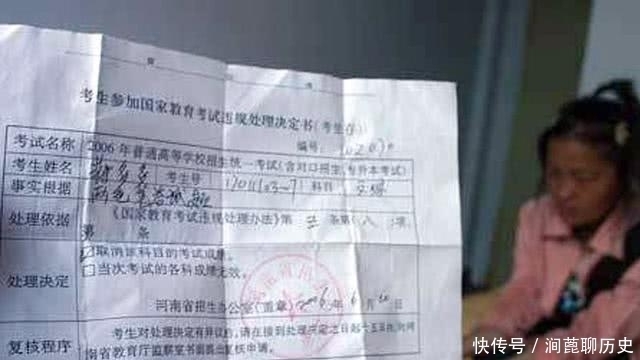 考生参加国家教育考试违规处理决定书(考生
编号:
考试名称 2006年普通高等学校招生统一考试(含对口招生、专升本考试)
考生姓名 考生号 科目 文综
事实根据
处理依据 《国家教育考试违规处理办法》第 条第 八 项
第 条
处理决定 ☑取消该科目的考试成绩。
□当次考试的各科成绩无效。
河南省招生办公室(盖章) 2006年6月20日
复核程序 考生对处理决定有异议的,请在接到处理决定之日起十五日内,向河
南省教育厅监察室书面提出复核申请。
快传号 / 涧蓖聊历史